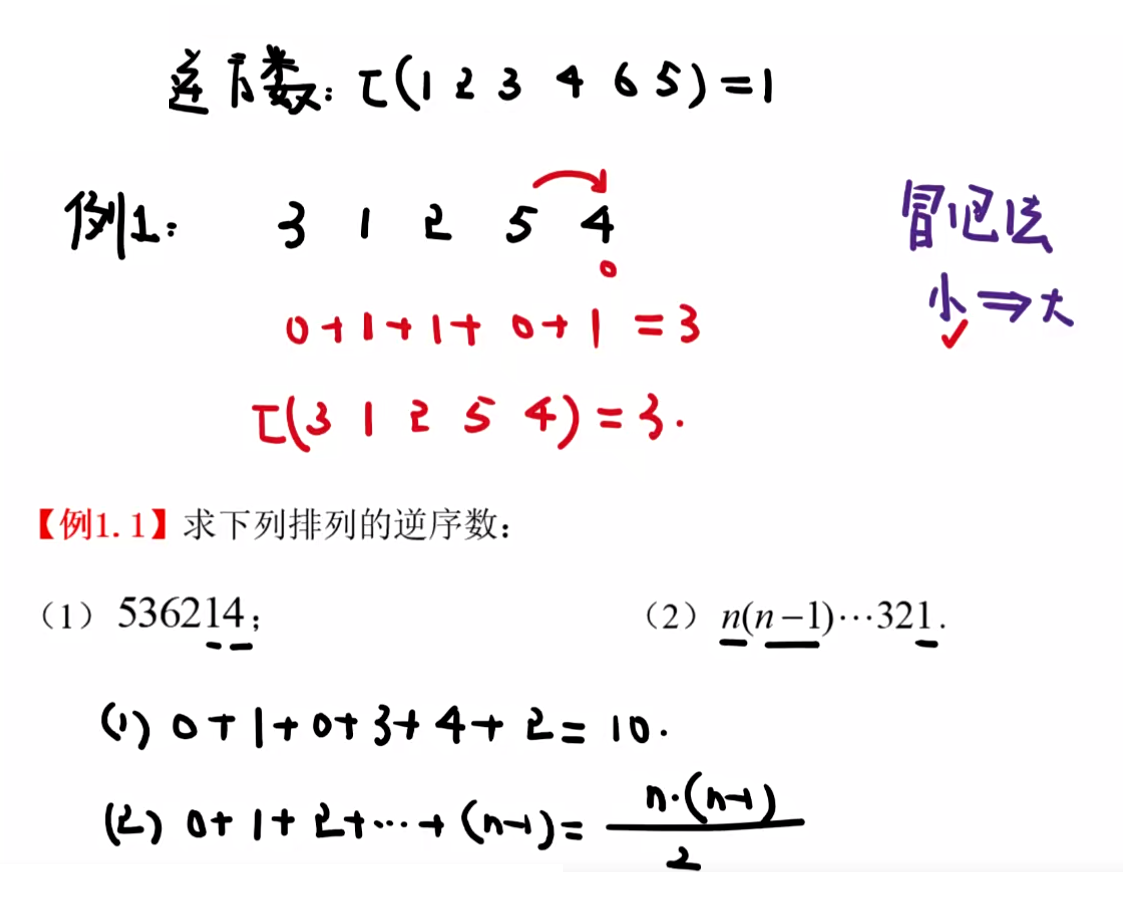 逆序数: τ(1 2 3 4 6 5)=1
例1: 3 1 2 5 4
冒泡法
0
小⇒大
0+1+1+0+1=3
✓
τ(3 1 2 5 4)=3.
【例1.1】求下列排列的逆序数:
(1) 536214; (2) n(n−1)⋯321.
(1) 0+1+0+3+4+2=10.
(2) 0+1+2+⋯+(n-1)= n·(n-1)/2